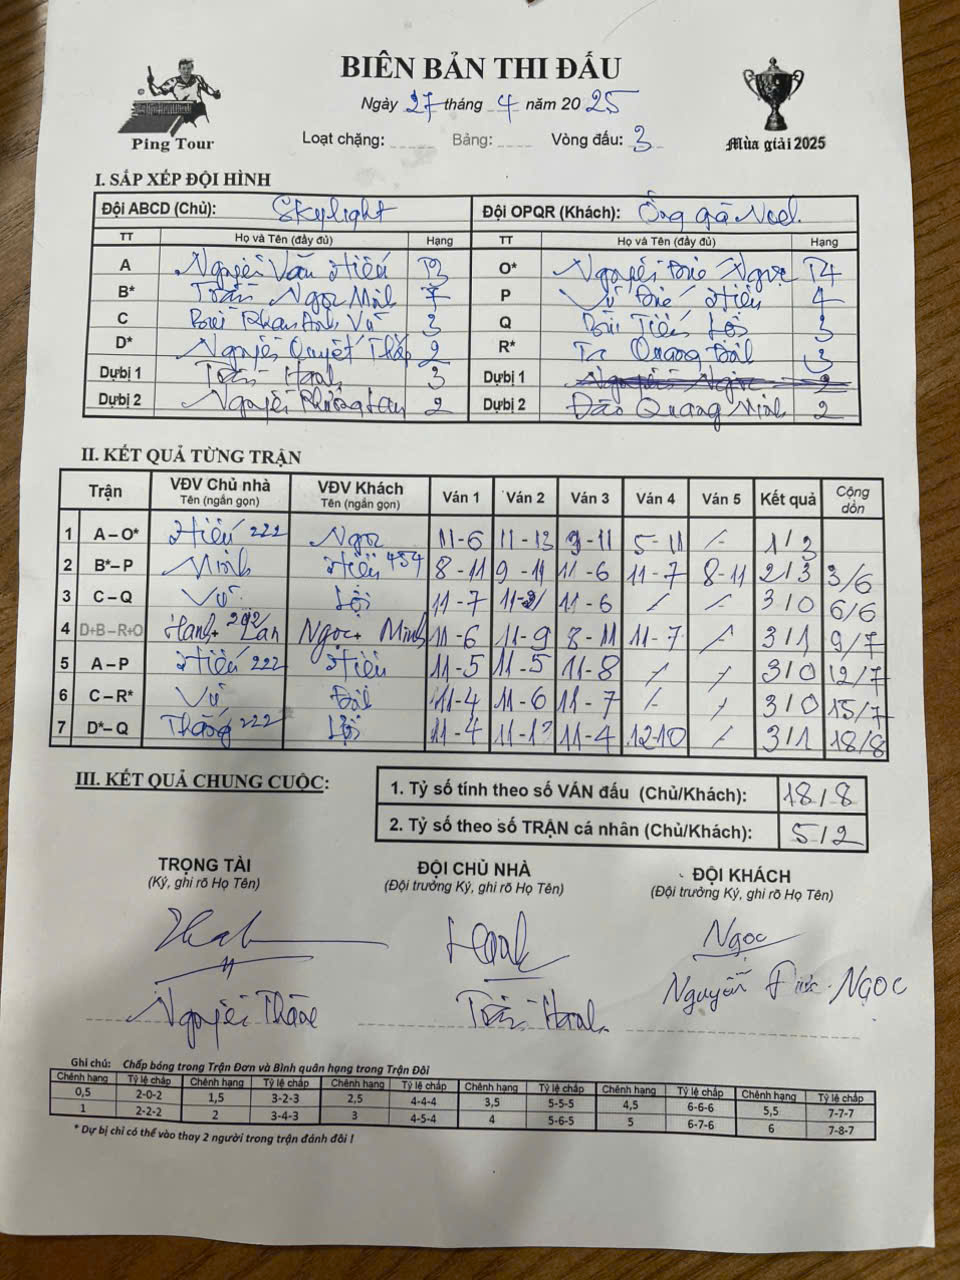 BIÊN BẢN THI ĐẤU
Ngày 27 tháng 4 năm 2025
Ping Tour
Loạt chặng: Bảng: Vòng đấu: 3
Mùa giải 2025
I. SẮP XẾP ĐỘI HÌNH
Đội ABCD (Chủ): Skylight Đội OPQR (Khách): Ông già Noel.
TT Họ và Tên (đầy đủ) Hạng TT Họ và Tên (đầy đủ) Hạng
A Nguyễn Văn Hiếu O* Nguyễn Đức Ngọc
B* Trần Ngọc Minh P Vũ Đức Hiếu 4
C Bùi Phan Anh Vũ 3 Q Bùi Tiến Lợi 3
D* Nguyễn Quyết Thắng 2 R* Tạ Quang Đạt 3
Dự bị 1 Trần Hanh 3 Dự bị 1 Nguyễn Ngọc 2
Dự bị 2 Nguyễn Phương Lan 2 Dự bị 2 Đào Quang Minh 2
II. KẾT QUẢ TỪNG TRẬN
Trận VĐV Chủ nhà Tên (ngắn gọn) VĐV Khách Tên (ngắn gọn) Ván 1 Ván 2 Ván 3 Ván 4 Ván 5 Kết quả Cộng dồn
1 A – O* Hiếu 222 Ngọc 11-6 11-13 9-11 5-11 / 1/3
2 B* – P Minh Hiếu 454 8-11 9-11 11-6 11-7 8-11 2/3 3/6
3 C – Q Vũ Lợi 11-7 11- 11-6 / / 3/0 6/6
4 D+B – R+O Hanh+ Lan Ngọc+ Minh 11-6 11-9 8-11 11-7 / 3/1 9/7
5 A – P Hiếu 222 Hiếu 11-5 11-5 11-8 / / 3/0 12/7
6 C – R* Vũ Đạt 11-4 11-6 11-7 / / 3/0 15/7
7 D* – Q Thắng 222 Lợi 11-4 11-13 11-4 12-10 / 3/1 18/8
III. KẾT QUẢ CHUNG CUỘC:
1. Tỷ số tính theo số VÁN đấu (Chủ/Khách): 18/8
2. Tỷ số theo số TRẬN cá nhân (Chủ/Khách): 5/2
TRỌNG TÀI ĐỘI CHỦ NHÀ ĐỘI KHÁCH
(Ký, ghi rõ Họ Tên) (Đội trưởng Ký, ghi rõ Họ Tên) (Đội trưởng Ký, ghi rõ Họ Tên)
Hanh Ngọc
Nguyễn Trần Hanh Nguyễn Đức NGỌC
Ghi chú: Chấp bóng trong Trận Đơn và Bình quân hạng trong Trận Đôi
Chênh hạng Tỷ lệ chấp Chênh hạng Tỷ lệ chấp Chênh hạng Tỷ lệ chấp Chênh hạng Tỷ lệ chấp Chênh hạng Tỷ lệ chấp Chênh hạng Tỷ lệ chấp
0,5 2-0-2 1,5 3-2-3 2,5 4-4-4 3,5 5-5-5 4,5 6-6-6 5,5 7-7-7
1 2-2-2 2 3-4-3 3 4-5-4 4 5-6-5 5 6-7-6 6 7-8-7
* Dự bị chỉ có thể vào thay 2 người trong trận đánh đôi !